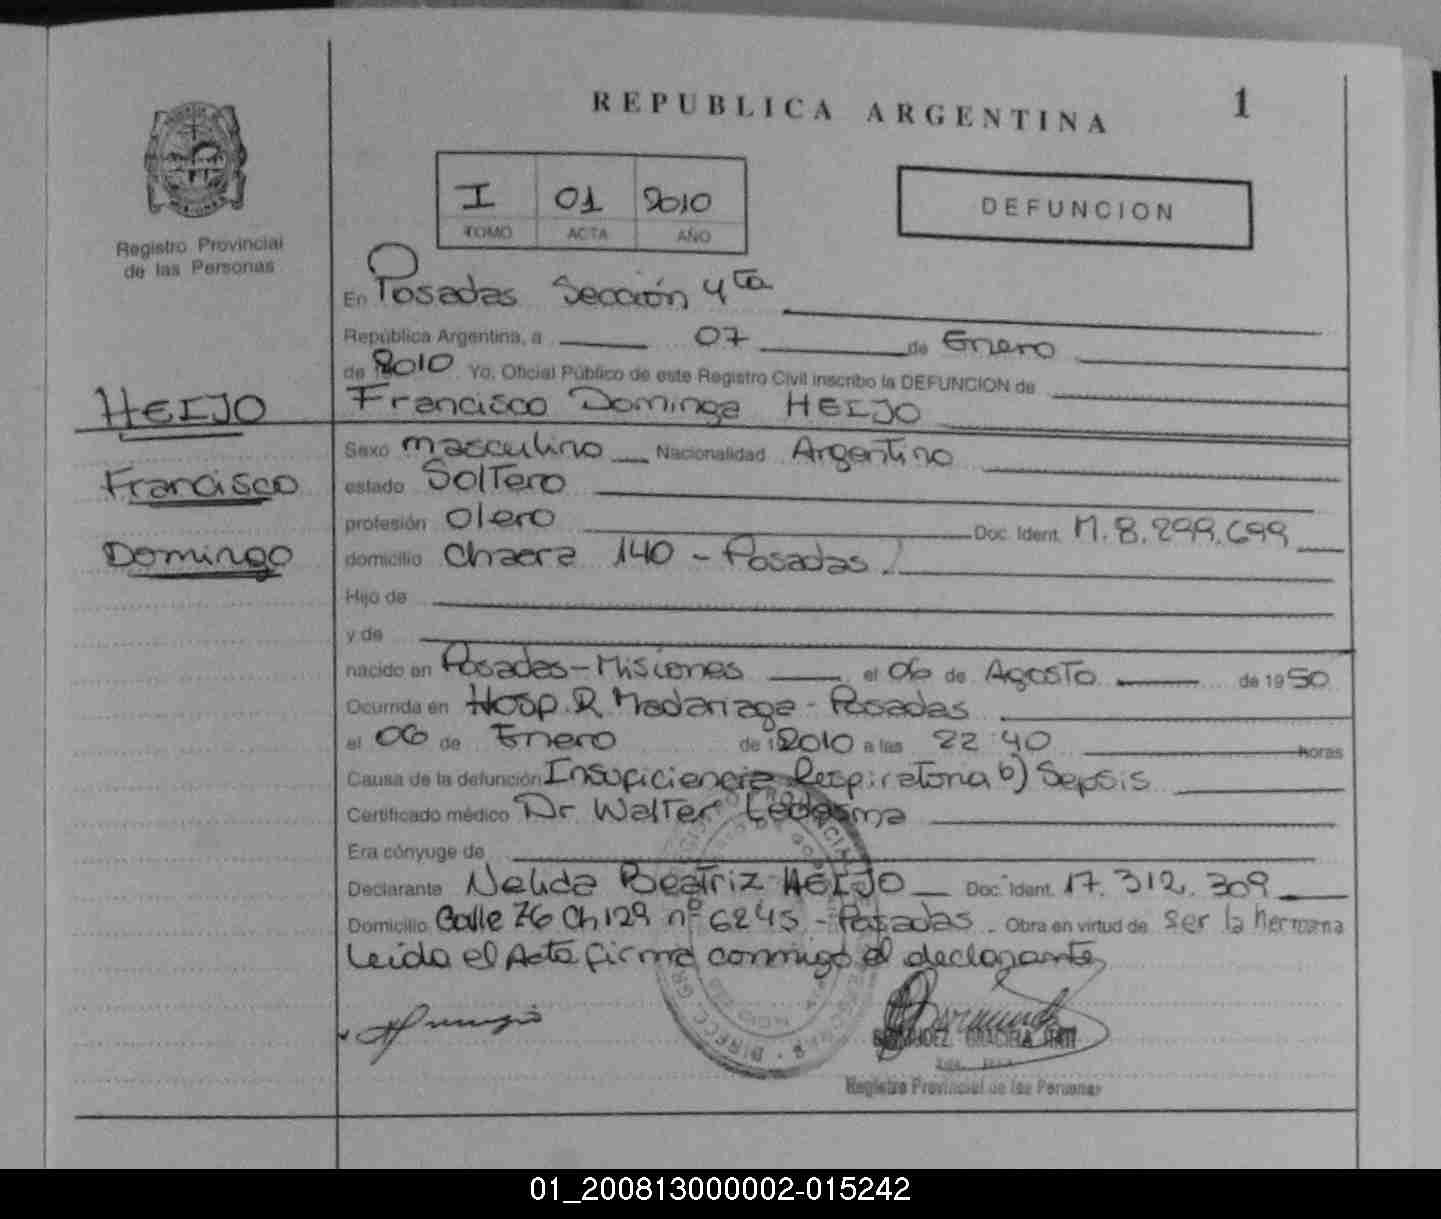 REPUBLICA ARGENTINA
1
I 01 2010
TOMO ACTA AÑO
DEFUNCION
Registro Provincial
de las Personas
En Posadas Sección 4ta
República Argentina, a 07 de Enero
de 2010 Yo, Oficial Público de este Registro Civil inscribo la DEFUNCION de
HEIJO
Francisco
Domingo
Francisco Domingo HEIJO
Sexo masculino Nacionalidad Argentino
estado Soltero
profesión Olero Doc. Ident. M. 8.299.699
domicilio Chacra 140 - Posadas
Hijo de
y de
nacido en Posadas - Misiones el 06 de Agosto de 1950
Ocurrida en Hosp. R. Madariaga - Posadas
el 06 de Enero de 2010 a las 22:40 horas
Causa de la defunción Insuficiencia Respiratoria b) Sepsis
Certificado médico Dr. Walter Ledesma
Era cónyuge de
Declarante Nelida Beatriz HEIJO Doc. Ident. 17.312.309
Domicilio Calle 76 Ch 129 nº 6245 - Posadas. Obra en virtud de ser la hermana
Leida el Acta firma conmigo el declarante
GRACIELA
Registro Provincial de las Personas
01_200813000002-015242